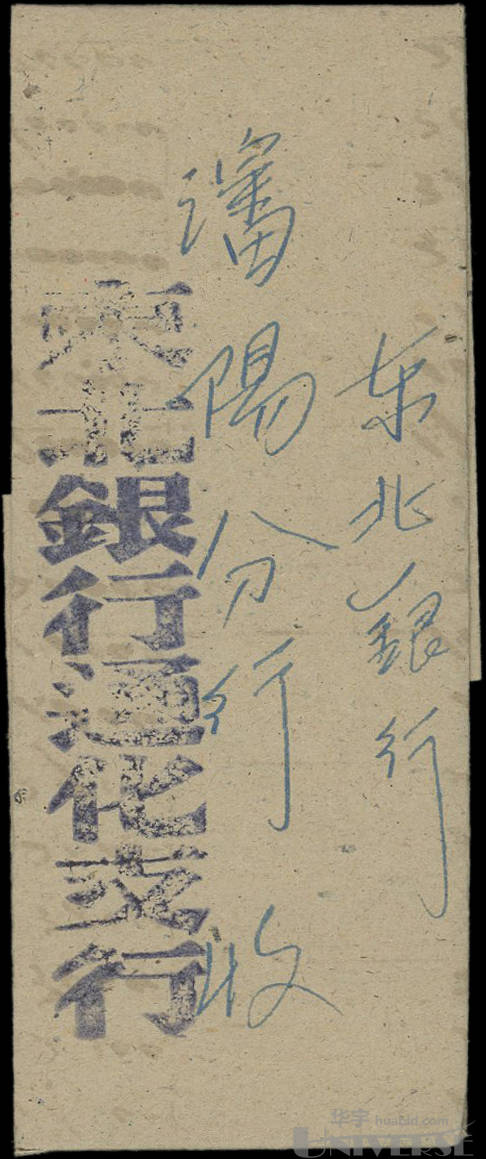 东北銀行
瀋陽分行 收
東北銀行通化支行
华宇 huabid.com
UNIVERSE